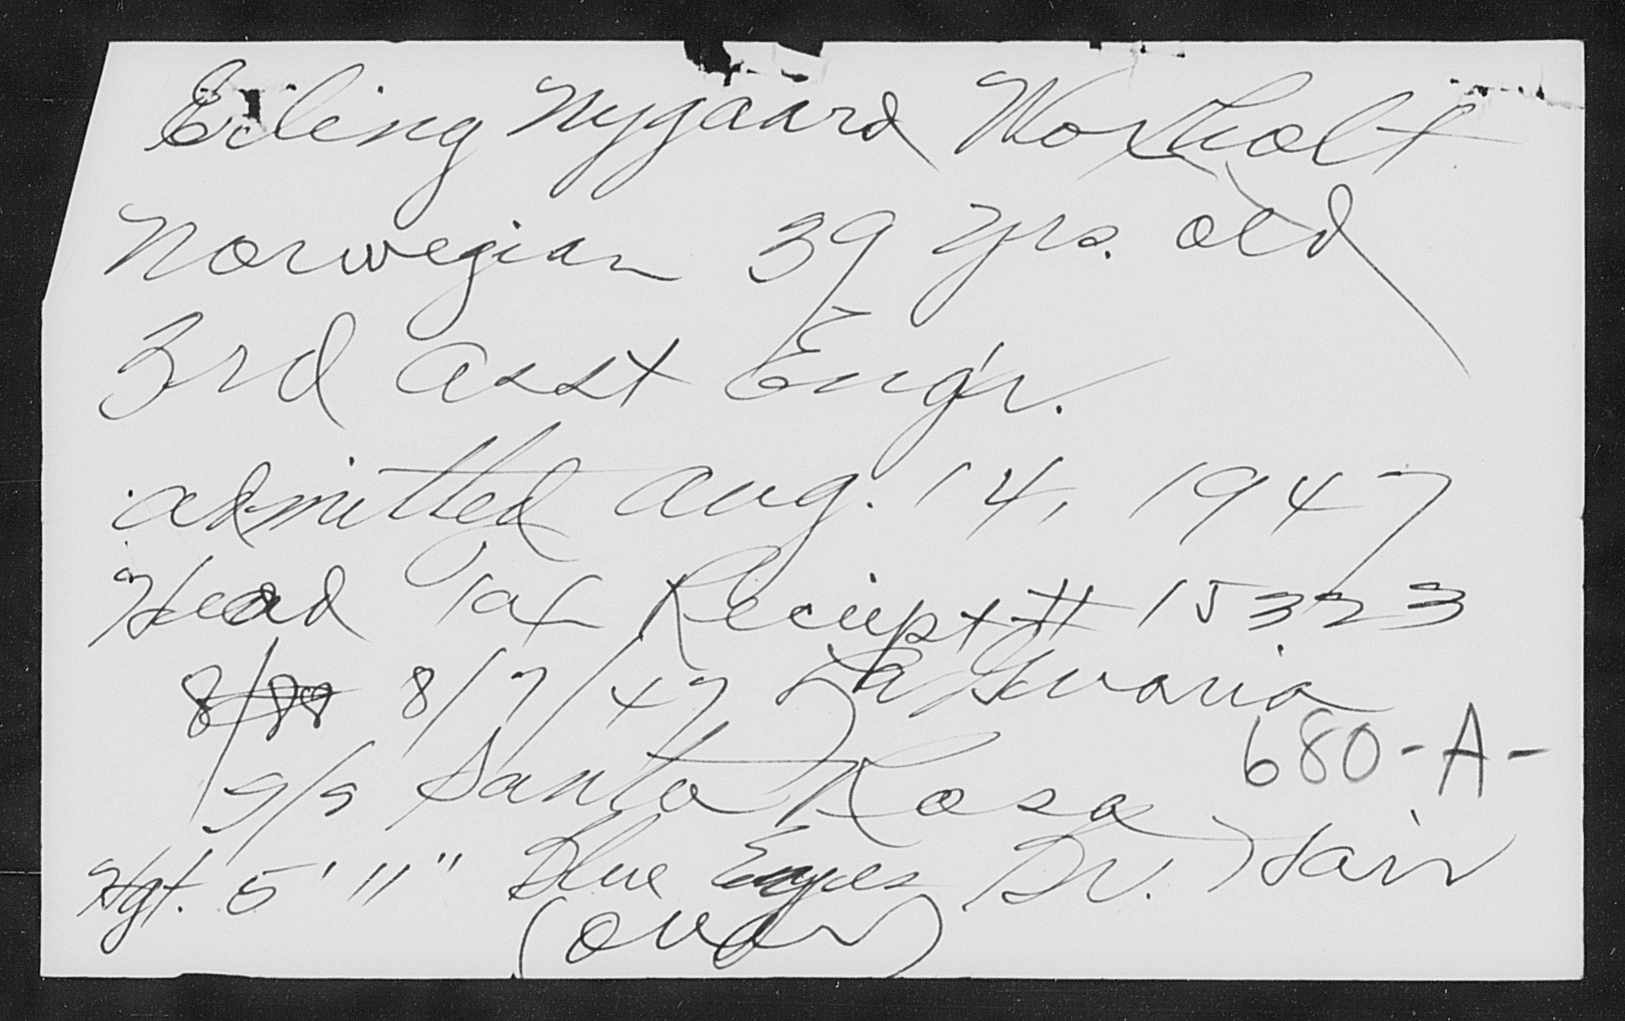 Erling Nygaard Woxholt
Norwegian 39 yrs. old
3rd Asst Engr.
admitted Aug. 14, 1947
Head Tax Reciept # 15323
8/7/47 La Guaria
680-A-
s/s Santa Rosa
Hgt. 5' 11" Blue Eyes Br. Hair
(over)